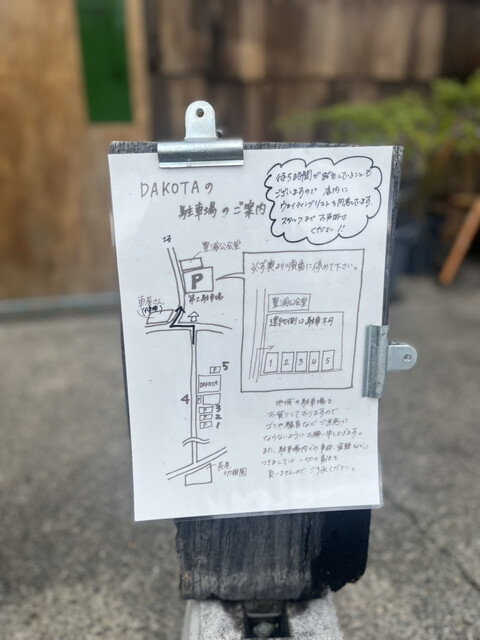 DAKOTAの
駐車場のご案内
待ち時間が発生してしまうことも
ございますので 店内に
ウェイティングリストを用意してます。
スタッフまでお声掛け
ください!!
豊浦公会堂
P
第2駐車場
※必ず奥より順番に停めて下さい。
豊浦公会堂
建物側は駐車不可
1 2 3 4 5
5
DAKOTA
4
3
2
1
地域の駐車場を
お借りしておりますので
ゴミや騒音などご迷惑に
ならないようにお願い申し上げます。
また、駐車場内での事故、盗難などに
つきましては一切の責任を
負いませんのでご了承ください。